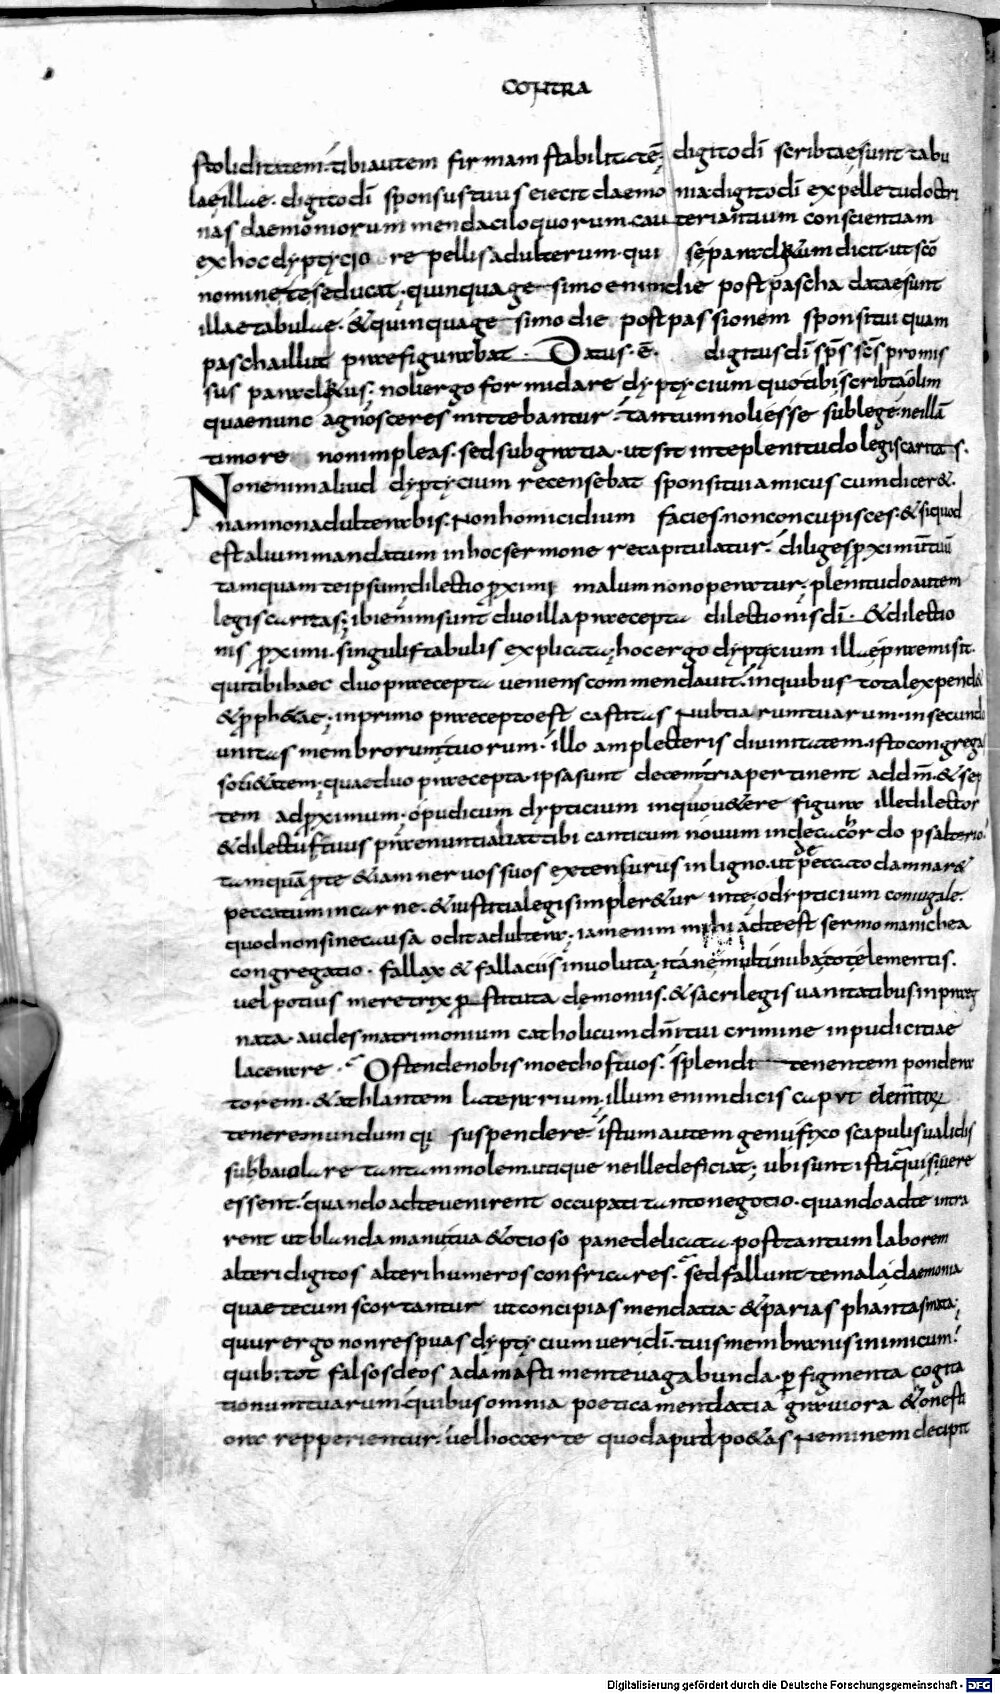 CONTRA
stoliditatem. tibi autem firmam stabilitatē; digito dī scribtae sunt tabu
lae illae. digito dī sponsus tuus eiecit daemonia. digito dī expelle tu doctri
nas daemoniorum mendaciloquorum. cauteriantium conscientiam
ex hoc dyptycio repellis adulterum. qui se paracl&um dicit. ut scō
nomine te seducat. quinquagesimo enim die post pascha datae sunt
illae tabulae. & quinquagesimo die post passionem sponsi tui quam
pascha illut praefigurabat. Datus. ē. digitus dī sp̄s sc̄s promis
sus paracl&us; noli ergo formidare dyptycium quo tibi scribta olim
quae nunc agnosceres mittebantur. tantum noli esse sub lege. ne illā
timore non impleas. sed sub gratia. ut sit in te plenitudo legis caritas.
Non enim aliud dyptycium recensebat sponsi tui amicus cum dicer&.
nam non adulterabis. Non homicidium facies. non concupisces. & si quod
est alium mandatum in hoc sermone recapitulatur. diliges proximū tuū
tamquam te ipsum; dilectio proximi malum non operatur; plenitudo autem
legis caritas; ibi enim sunt duo illa praecepta dilectionis dī. & dilectio
nis proximi. singulis tabulis explicata; hoc ergo dyptycium ille praemisit.
qui tibi haec duo praecepta veniens commendavit. in quibus tota lex pend&
& proph&ae; in primo praecepto est castitas Nubtiarum tuarum. in secundo
unitas membrorum tuorum. illo amplecteris divinitatem. isto congregas
soti&atem; quae duo praecepta. ipsa sunt decem. tria pertinent ad dm̄. & sep
tem ad proximum; o pudicum dypticium in quo v&ere figura ille dilector
& dilectus tuus praenuntiabat tibi canticum novum in decacordo psalterio.
tamquā pro te & iam nervos suos extensurus in ligno. ut de peccato damnar&
peccatum in carne. & iustitia legis impler&ur in te; o dypticium coniugale.
quod non sine causa odit adultera; iam enim mihi ad te est sermo manichea
congregatio. fallax & fallaciis involuta. itane multinuba tot elementis.
vel potius meretrix prostituta demoniis. & sacrilegis vanitatibus inpraeg
nata. audes matrimonium catholicum dn̄i tui crimine inpudicitiae
lacerare. Ostende nobis moechos tuos. splenditenentem pondera
torem. & athlantem laterarium. illum enim dicis caput
tenere mundumq; suspendere. istum autem genu fixo scapulis validis
subbaiolare tantam molem. utique ne ille deficiat; ubi sunt isti. qui si vere
essent. quando ad te venirent occupati tanto negotio. quando ad te intra
rent ut blanda manu tua & otioso pane delicata. post tantum laborem
alteri digitos alteri humeros confricares. sed fallunt te mala daemonia
quae tecum scortantur ut concipias mendatia. & parias phantasmata;
quur ergo non respuas dyptycium veri dī. tuis membranis inimicum.
quib; tot falsos deos adamasti mente vagabunda. per figmenta cogita
tionum tuarum. quibus omnia poetica mendatia graviora & onesti
ora repperientur. vel hoc certe quod apud po&as Neminem decipit